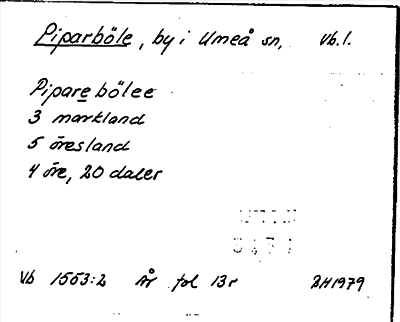 Piparböle, by i Umeå sn, Vb.l.
Pipare bölee
3 markland
5 öresland
4 öre, 20 daler
Vb 1553:2 År fol 13r BH1979